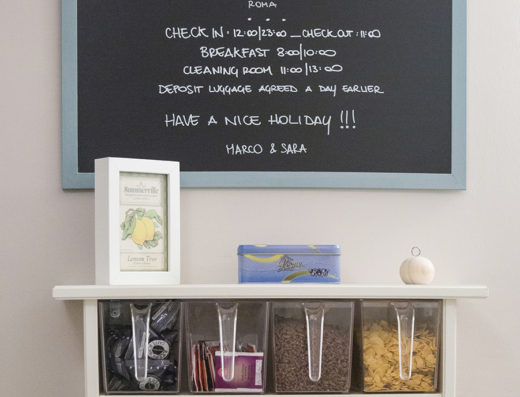 ROMA
CHECK IN · 12:00/23:00 _ CHECK OUT : 11:00
BREAKFAST 8:00/10:00
CLEANING ROOM 11:00/13:00
DEPOSIT LUGGAGE AGREED A DAY EARLIER
HAVE A NICE HOLIDAY !!!
MARCO & SARA
Bonnerville
Lemon Tree